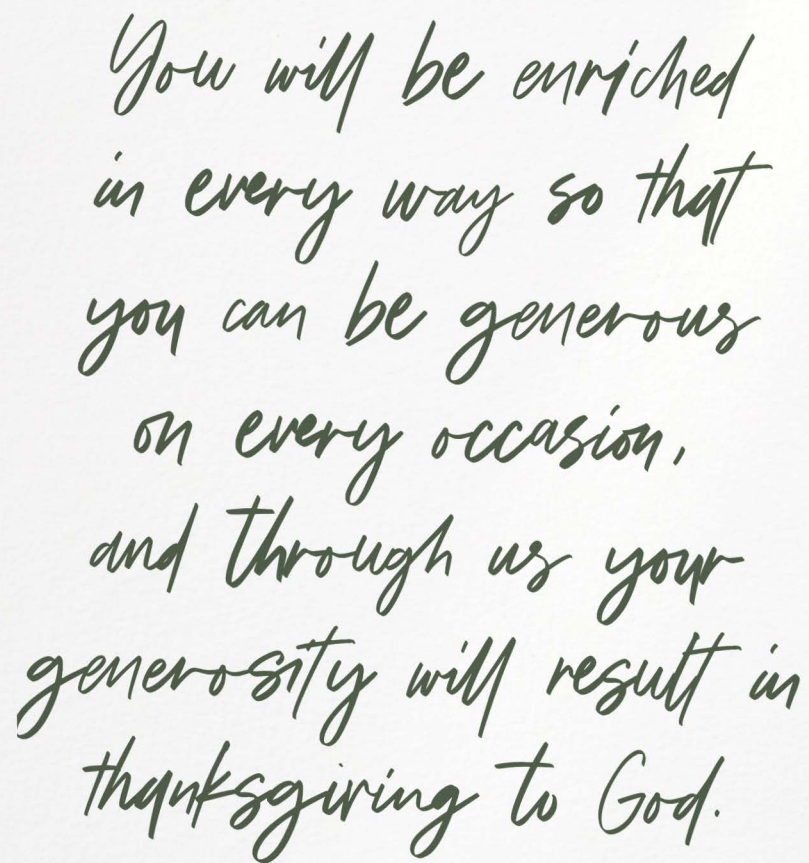 You will be enriched
in every way so that
you can be generous
on every occasion,
and through us your
generosity will result in
thanksgiving to God.